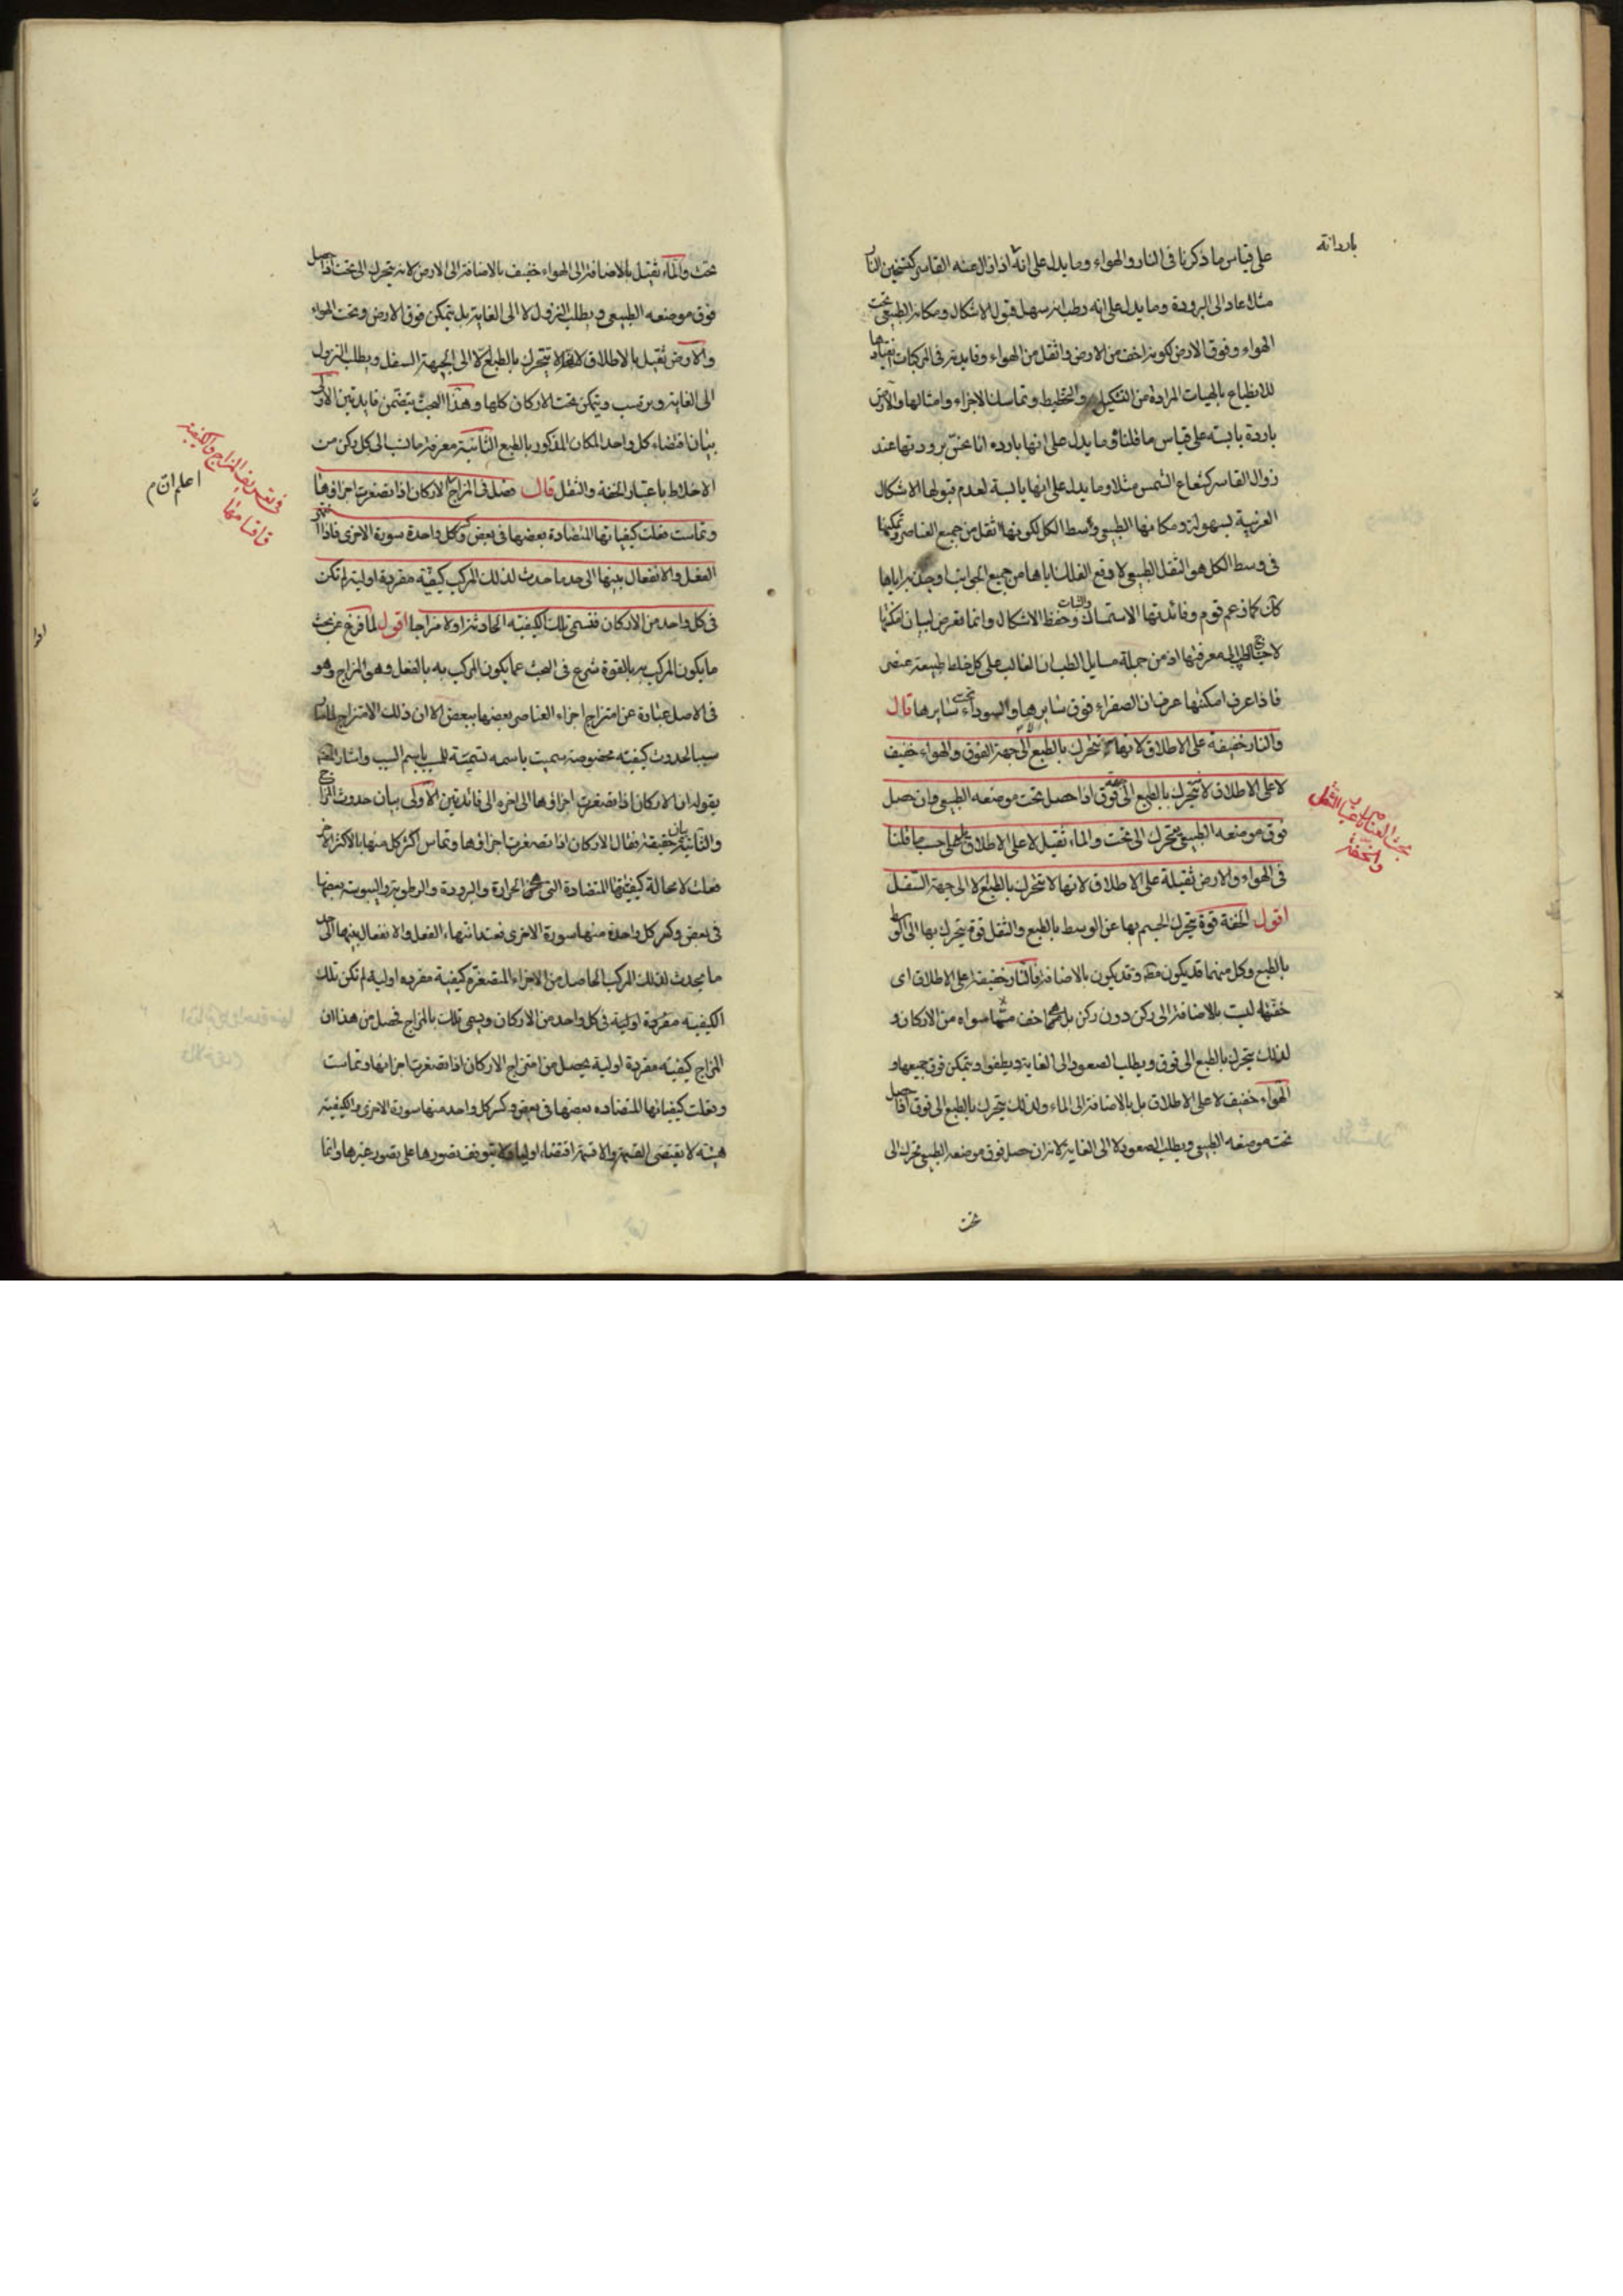 بارد انه
على قياس ما ذكرنا فى النار والهواء وما يدل على انه اذا زال عنه القاسر كتسخين النار
مثلا عاد الى البرودة وما يدل على انه رطب انه سهل قبول الاشكال ومكانه الطبيعى تحت
الهواء وفوق الارض لكونه اخف من الارض واثقل من الهواء وفايدته فى المركبات
للانطباع بالهيات المرادة من التشكيل والتخطيط وتماسك الاجزاء وامثالها والارض
باردة يابسة على قياس ما قلنا وما يدل على انها بارده انا نحس برودتها عند
زوال القاسر كشعاع الشمس مثلا وما يدل على انها يابسة لعدم قبولها الاشكال
الغريبة بسهولة ومكانها الطبيعى وسط الكل لكونها اثقل من جميع العناصر وتمكينها
فى وسط الكل هو الثقل الطبيعى لا دفع الفلك اياها من جميع الجوانب او جذبه اياها
كما زعم قوم وفائدتها الاستمساك والثبات وحفظ الاشكال وانما تعرض لبيان امكنتها
لاحتياج الطب الى معرفتها اذ من جملة مسايل الطب ان الغالب على كل خلط طبيعة عنصر
فاذا عرف امكنتها عرف ان الصفراء فوق سايرها والسوداء تحت سايرها قال
والنار خفيفة على الاطلاق لانها لا تتحرك بالطبع الا الى جهة الفوق والهواء خفيف
لا على الاطلاق لانه يتحرك بالطبع الى جهة فوق اذا حصل تحت موضعه الطبيعى وان حصل
فوق موضعه الطبيعى يتحرك الى تحت والماء ثقيل لا على الاطلاق على حسب ما قلنا
فى الهواء والارض ثقيلة على الاطلاق لانها لا تتحرك بالطبع الا الى جهة السفل
بحث العناصر باعتبار الثقل
والخفة
اقول الخفة قوة يتحرك الجسم بها عن الوسط بالطبع والثقل قوة يتحرك بها الى الوسط
بالطبع وكل منهما قد يكون مط وقد يكون بالاضافة فالنار خفيفة على الاطلاق اى
خفتها ليست بالاضافة الى ركن دون ركن بل هى اخف مما سواه من الاركان و
لذلك يتحرك بالطبع الى فوق ويطلب الصعود الى الغاية ويطفوا ويتمكن فوق جميعها و
الهواء خفيف لا على الاطلاق بل بالاضافة الى الماء ولذلك يتحرك بالطبع الى فوق اذا حصل
تحت موضعه الطبيعى ويطلب الصعود لا الى الغاية لانه ان حصل فوق موضعه الطبيعى تحرك الى
تحت
تحت والماء ثقيل بالاضافة الى الهواء خفيف بالاضافة الى الارض لانه يتحرك الى تحت اذا حصل
فوق موضعه الطبيعى ويطلب النزول لا الى الغاية بل يتمكن فوق الارض وتحت الهواء
والارض ثقيل بالاطلاق لانها لا تتحرك بالطبع الا الى الجهة السفل ويطلب النزول
الى الغاية ويرسب ويتمكن تحت الاركان كلها وهذا البحث يتضمن فايدتين الاولى
بيان اقتضاء كل واحد المكان المذكور بالطبع الثانية معرفة ما نسب الى كل ركن من
الاخلاط باعتبار الخفة والثقل قال فصل فى المزاج الاركان اذا تصغرت اجزاؤها
فى تعريف المزاج والكيفية
واقسامها
اعلم ان م
وتماست فعلت كيفياتها المتضادة بعضها فى بعض وكسر كل واحدة سورة الاخرى فاذا انتهى
الفعل والانفعال بينها الى حد ما حدث لذلك المركب كيفية مفردة اولية لم تكن
فى كل واحد من الاركان فتسمى تلك الكيفية الحادثة اولا مزاجا اقول لما فرغ عن بحث
ما يكون المركب به بالقوة شرع فى البحث عما يكون المركب به بالفعل وهو المزاج وهو
فى الاصل عبارة عن امتزاج اجزاء العناصر بعضها ببعض الا ان ذلك الامتزاج لما كان
سببا لحدوث كيفية مخصوصة سميت باسمه تسمية للمسبب باسم السبب واشار المص
بقوله ان الاركان اذا تصغرت اجزاؤها الى اخره الى فائدتين الاولى بيان حدوث المزاج
والثانية بيان حقيقته فقال الاركان اذا تصغرت اجزاؤها وتماس اكثر كل منها بالاكثر الاخر
فعلت لا محالة كيفيتها المتضادة التى هى الحرارة والبرودة والرطوبة واليبوسة بعضها
فى بعض وكسر كل واحدة منها سورة الاخرى فعند انتهاء الفعل والانفعال بينها الى حد
ما يحدث لذلك المركب الحاصل من الاجزاء المتصغرة كيفية مفرده اولية لم تكن تلك
الكيفية مفردة اولية فى كل واحد من الاركان ويسمى تلك بالمزاج فحصل من هذا ان
المزاج كيفية مفردة اولية يحصل من امتزاج الاركان اذا تصغرت اجزائها وتماست
وفعلت كيفياتها المتضاده بعضها فى بعض وكسر كل واحد منها سورة الاخرى والكيفية
هيئة لا يقتضى القسمة واللاقسمة اقتضاء اوليا ولا يتوقف تصورها على تصور غيرها وانما